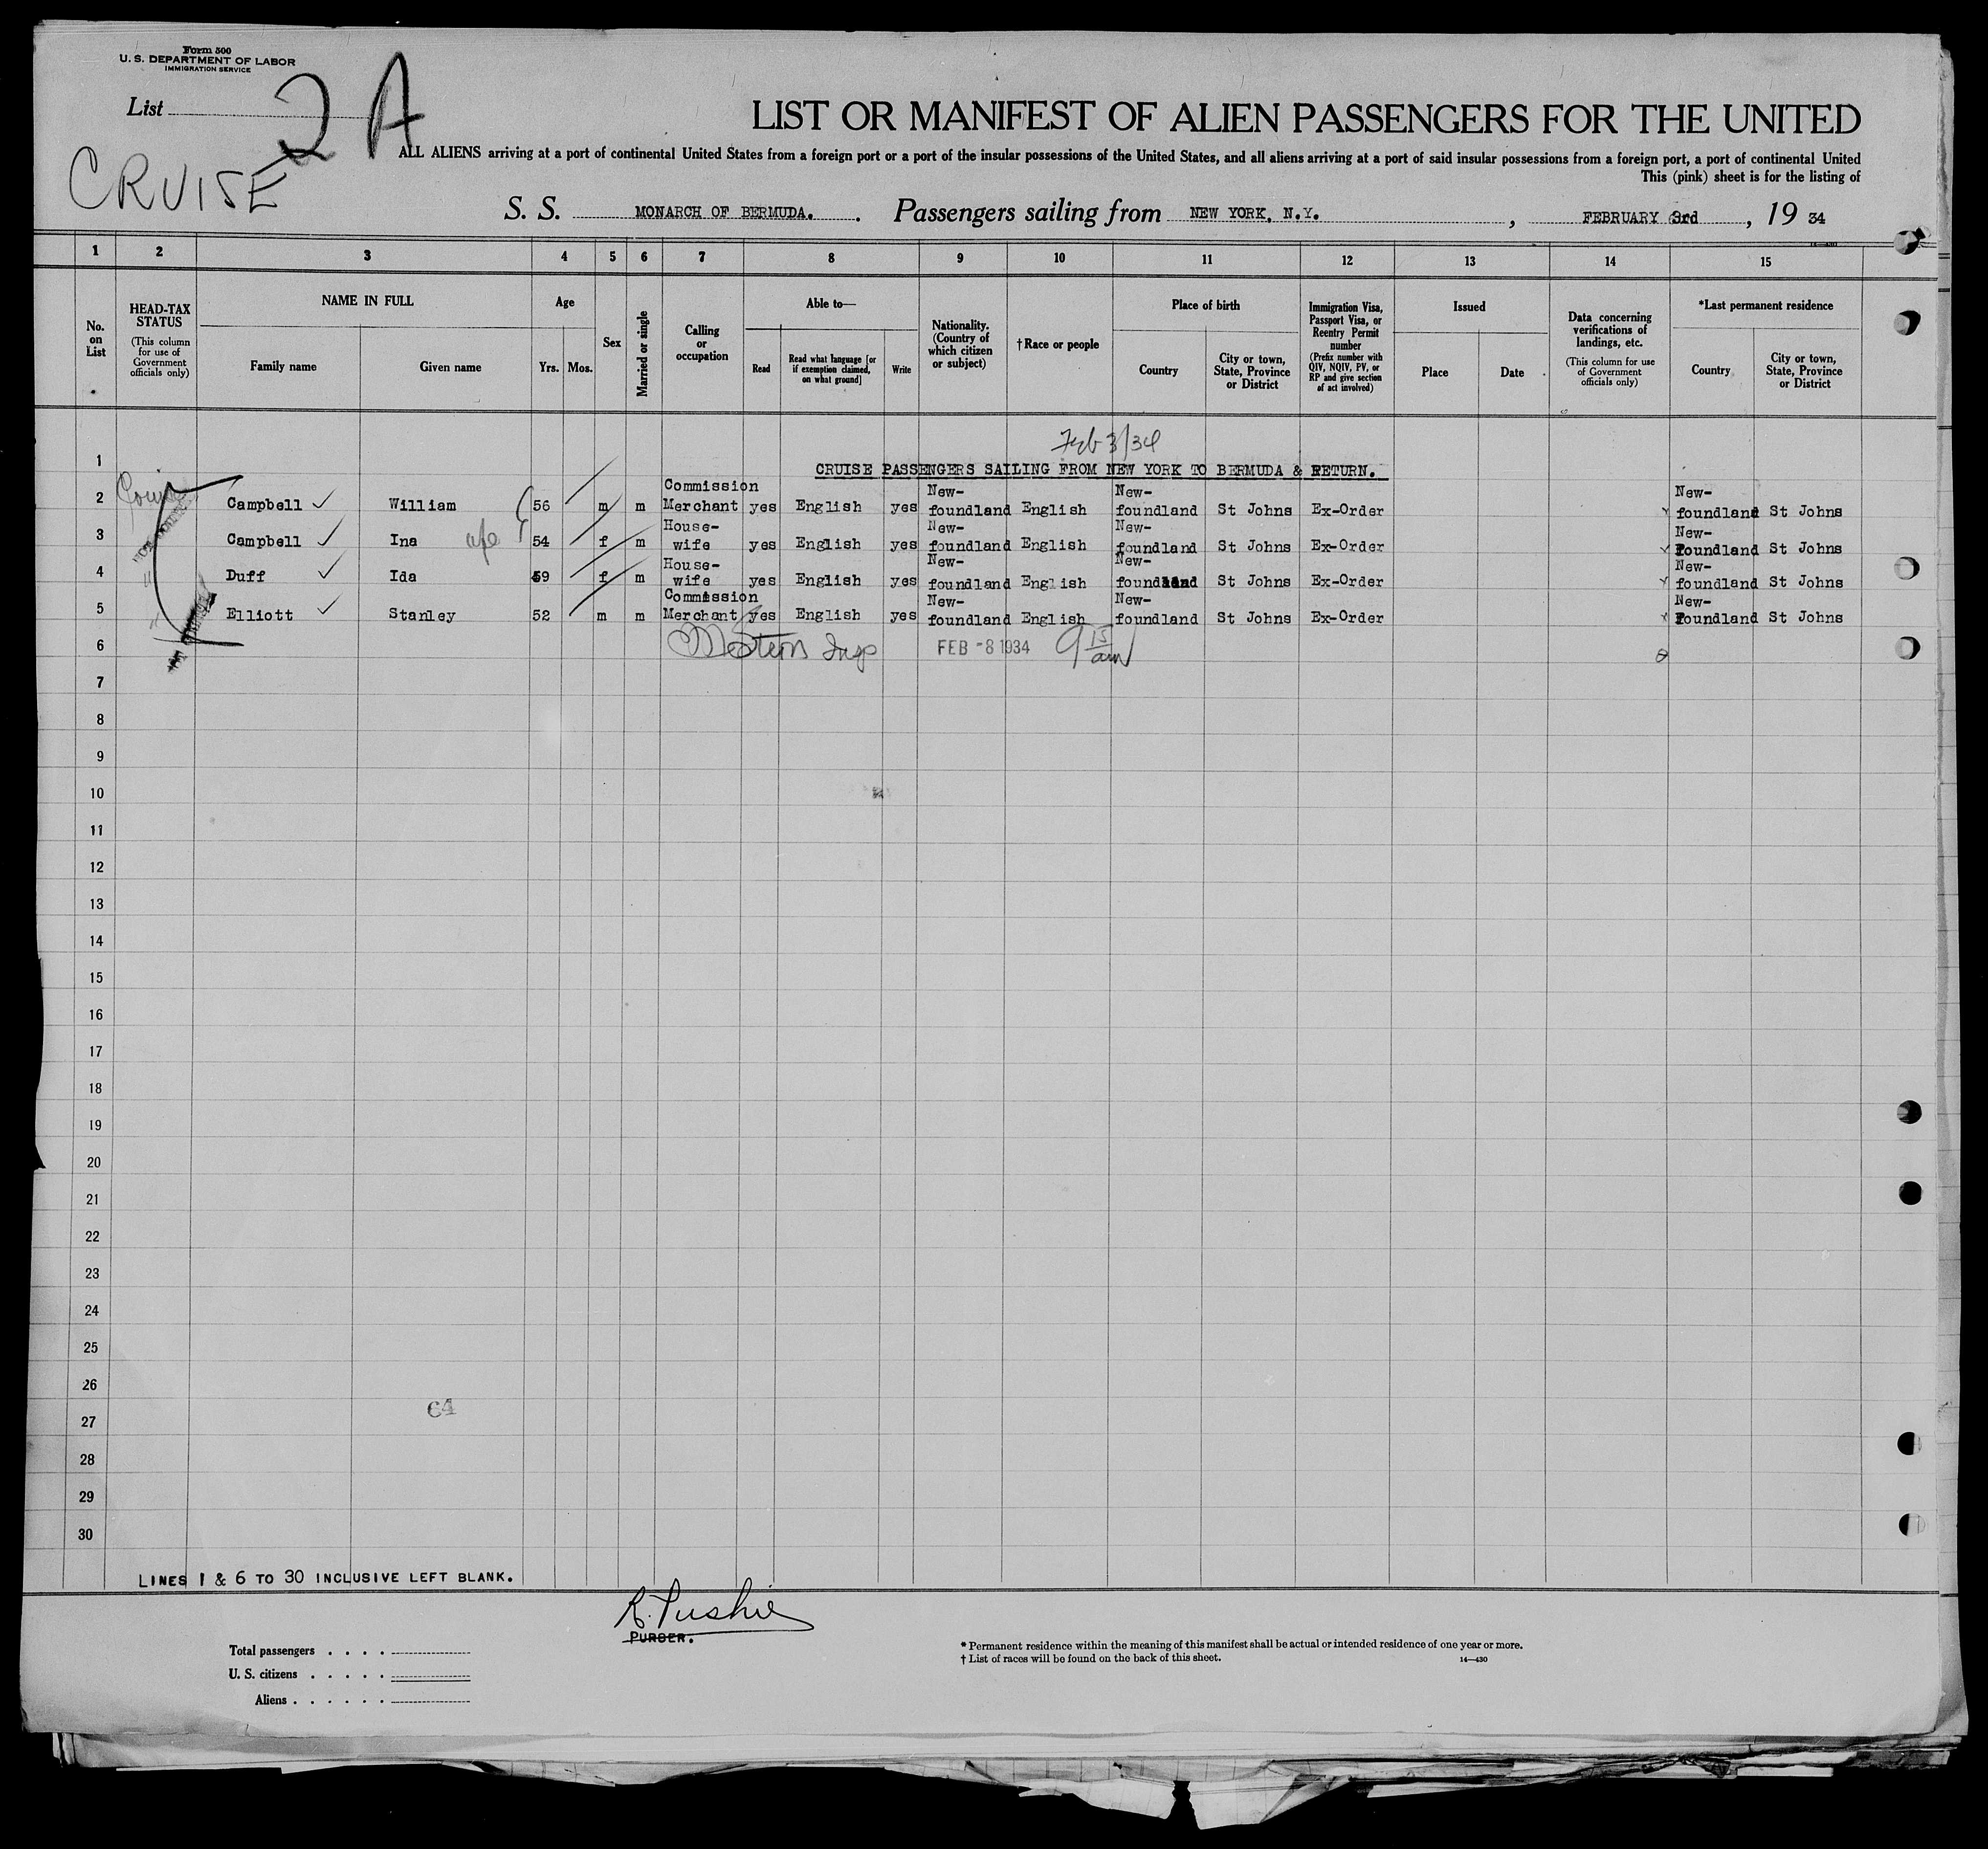 Form 500
U. S. DEPARTMENT OF LABOR
IMMIGRATION SERVICE
List 2 A
CRUISE
LIST OR MANIFEST OF ALIEN PASSENGERS FOR THE UNITED
ALL ALIENS arriving at a port of continental United States from a foreign port or a port of the insular possessions of the United States, and all aliens arriving at a port of said insular possessions from a foreign port, a port of continental United
This (pink) sheet is for the listing of
S. S. MONARCH OF BERMUDA. Passengers sailing from NEW YORK, N.Y. , FEBRUARY 3rd , 19 34
14—430
1 2 3 4 5 6 7 8 9 10 11 12 13 14 15
No. on List
HEAD-TAX STATUS (This column for use of Government officials only)
NAME IN FULL
Family name Given name
Age
Yrs. Mos.
Sex
Married or single
Calling or occupation
Able to—
Read
Read what language [or if exemption claimed, on what ground]
Write
Nationality. (Country of which citizen or subject)
† Race or people
Place of birth
Country
City or town, State, Province or District
Immigration Visa, Passport Visa, or Reentry Permit number (Prefix number with QIV, NQIV, PV, or RP and give section of act involved)
Issued
Place Date
Data concerning verifications of landings, etc. (This column for use of Government officials only)
*Last permanent residence
Country
City or town, State, Province or District
Feb 3/34
1 CRUISE PASSENGERS SAILING FROM NEW YORK TO BERMUDA & RETURN.
2 Campbell William 56 m m Commission Merchant yes English yes New-foundland English New-foundland St Johns Ex-Order New-foundland St Johns
3 Campbell Ina wife 54 f m House-wife yes English yes New-foundland English New-foundland St Johns Ex-Order New-foundland St Johns
4 Duff Ida 59 f m House-wife yes English yes New-foundland English New-foundland St Johns Ex-Order New-foundland St Johns
5 Elliott Stanley 52 m m Commission Merchant yes English yes New-foundland English New-foundland St Johns Ex-Order New-foundland St Johns
6 Insp FEB -8 1934 9 15 am
7
8
9
10
11
12
13
14
15
16
17
18
19
20
21
22
23
24
25
26
64
27
28
29
30
LINES 1 & 6 TO 30 INCLUSIVE LEFT BLANK.
R. Pushie
PURSER.
Total passengers . . . .
U. S. citizens . . . . .
Aliens . . . . . .
* Permanent residence within the meaning of this manifest shall be actual or intended residence of one year or more.
† List of races will be found on the back of this sheet.
14—430